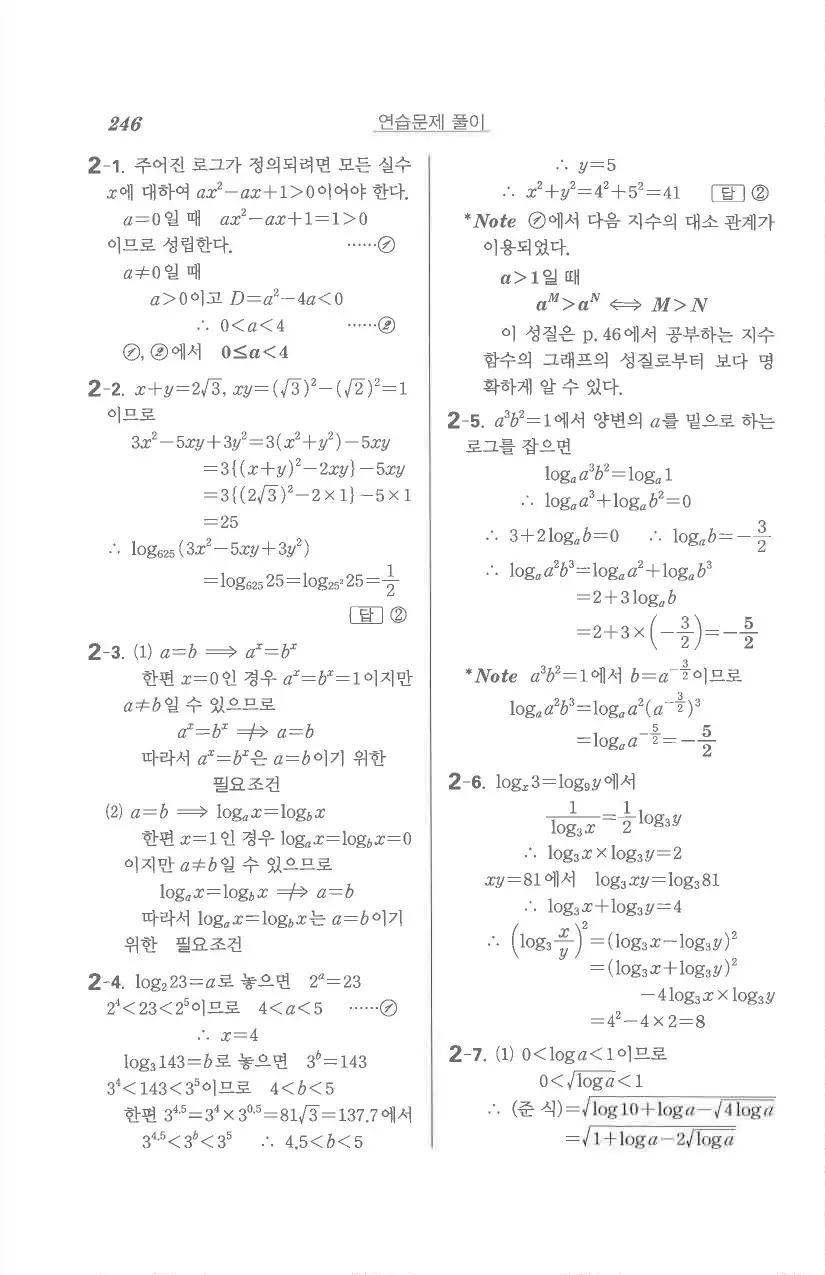 246
연습문제 풀이
2-1. 주어진 로그가 정의되려면 모든 실수
x에 대하여 ax²−ax+1>0이어야 한다.
a=0일 때 ax²−ax+1=1>0
이므로 성립한다. ……①
a≠0일 때
a>0이고 D=a²−4a<0
∴ 0<a<4 ……②
①, ②에서 0≤a<4
2-2. x+y=2√3, xy=(√3)²−(√2)²=1
이므로
3x²−5xy+3y²=3(x²+y²)−5xy
=3{(x+y)²−2xy}−5xy
=3{(2√3)²−2×1}−5×1
=25
∴ log₆₂₅(3x²−5xy+3y²)
=log₆₂₅25=log_{25²}25=1/2
답 ②
2-3. (1) a=b ⟹ aˣ=bˣ
한편 x=0인 경우 aˣ=bˣ=1이지만
a≠b일 수 있으므로
aˣ=bˣ ⇏ a=b
따라서 aˣ=bˣ은 a=b이기 위한
필요조건
(2) a=b ⟹ log_a x=log_b x
한편 x=1인 경우 log_a x=log_b x=0
이지만 a≠b일 수 있으므로
log_a x=log_b x ⇏ a=b
따라서 log_a x=log_b x는 a=b이기
위한 필요조건
2-4. log₂23=a로 놓으면 2ᵃ=23
2⁴<23<2⁵이므로 4<a<5 ……①
∴ x=4
log₃143=b로 놓으면 3ᵇ=143
3⁴<143<3⁵이므로 4<b<5
한편 3^{4.5}=3⁴×3^{0.5}=81√3=137.7에서
3^{4.5}<3ᵇ<3⁵ ∴ 4.5<b<5
∴ y=5
∴ x²+y²=4²+5²=41 답 ②
*Note ①에서 다음 지수의 대소 관계가
이용되었다.
a>1일 때
a^M>a^N ⟺ M>N
이 성질은 p. 46에서 공부하는 지수
함수의 그래프의 성질로부터 보다 명
확하게 알 수 있다.
2-5. a³b²=1에서 양변의 a를 밑으로 하는
로그를 잡으면
log_a a³b²=log_a 1
∴ log_a a³+log_a b²=0
∴ 3+2log_a b=0 ∴ log_a b=−3/2
∴ log_a a²b³=log_a a²+log_a b³
=2+3log_a b
=2+3×(−3/2)=−5/2
*Note a³b²=1에서 b=a^{−3/2}이므로
log_a a²b³=log_a a²(a^{−3/2})³
=log_a a^{−5/2}=−5/2
2-6. log_x 3=log₉y에서
1/log₃x=1/2 log₃y
∴ log₃x×log₃y=2
xy=81에서 log₃xy=log₃81
∴ log₃x+log₃y=4
∴ (log₃ x/y)²=(log₃x−log₃y)²
=(log₃x+log₃y)²
−4log₃x×log₃y
=4²−4×2=8
2-7. (1) 0<log a<1이므로
0<√(log a)<1
∴ (준 식)=√(log 10+log a−√(4 log a))
=√(1+log a−2√(log a))